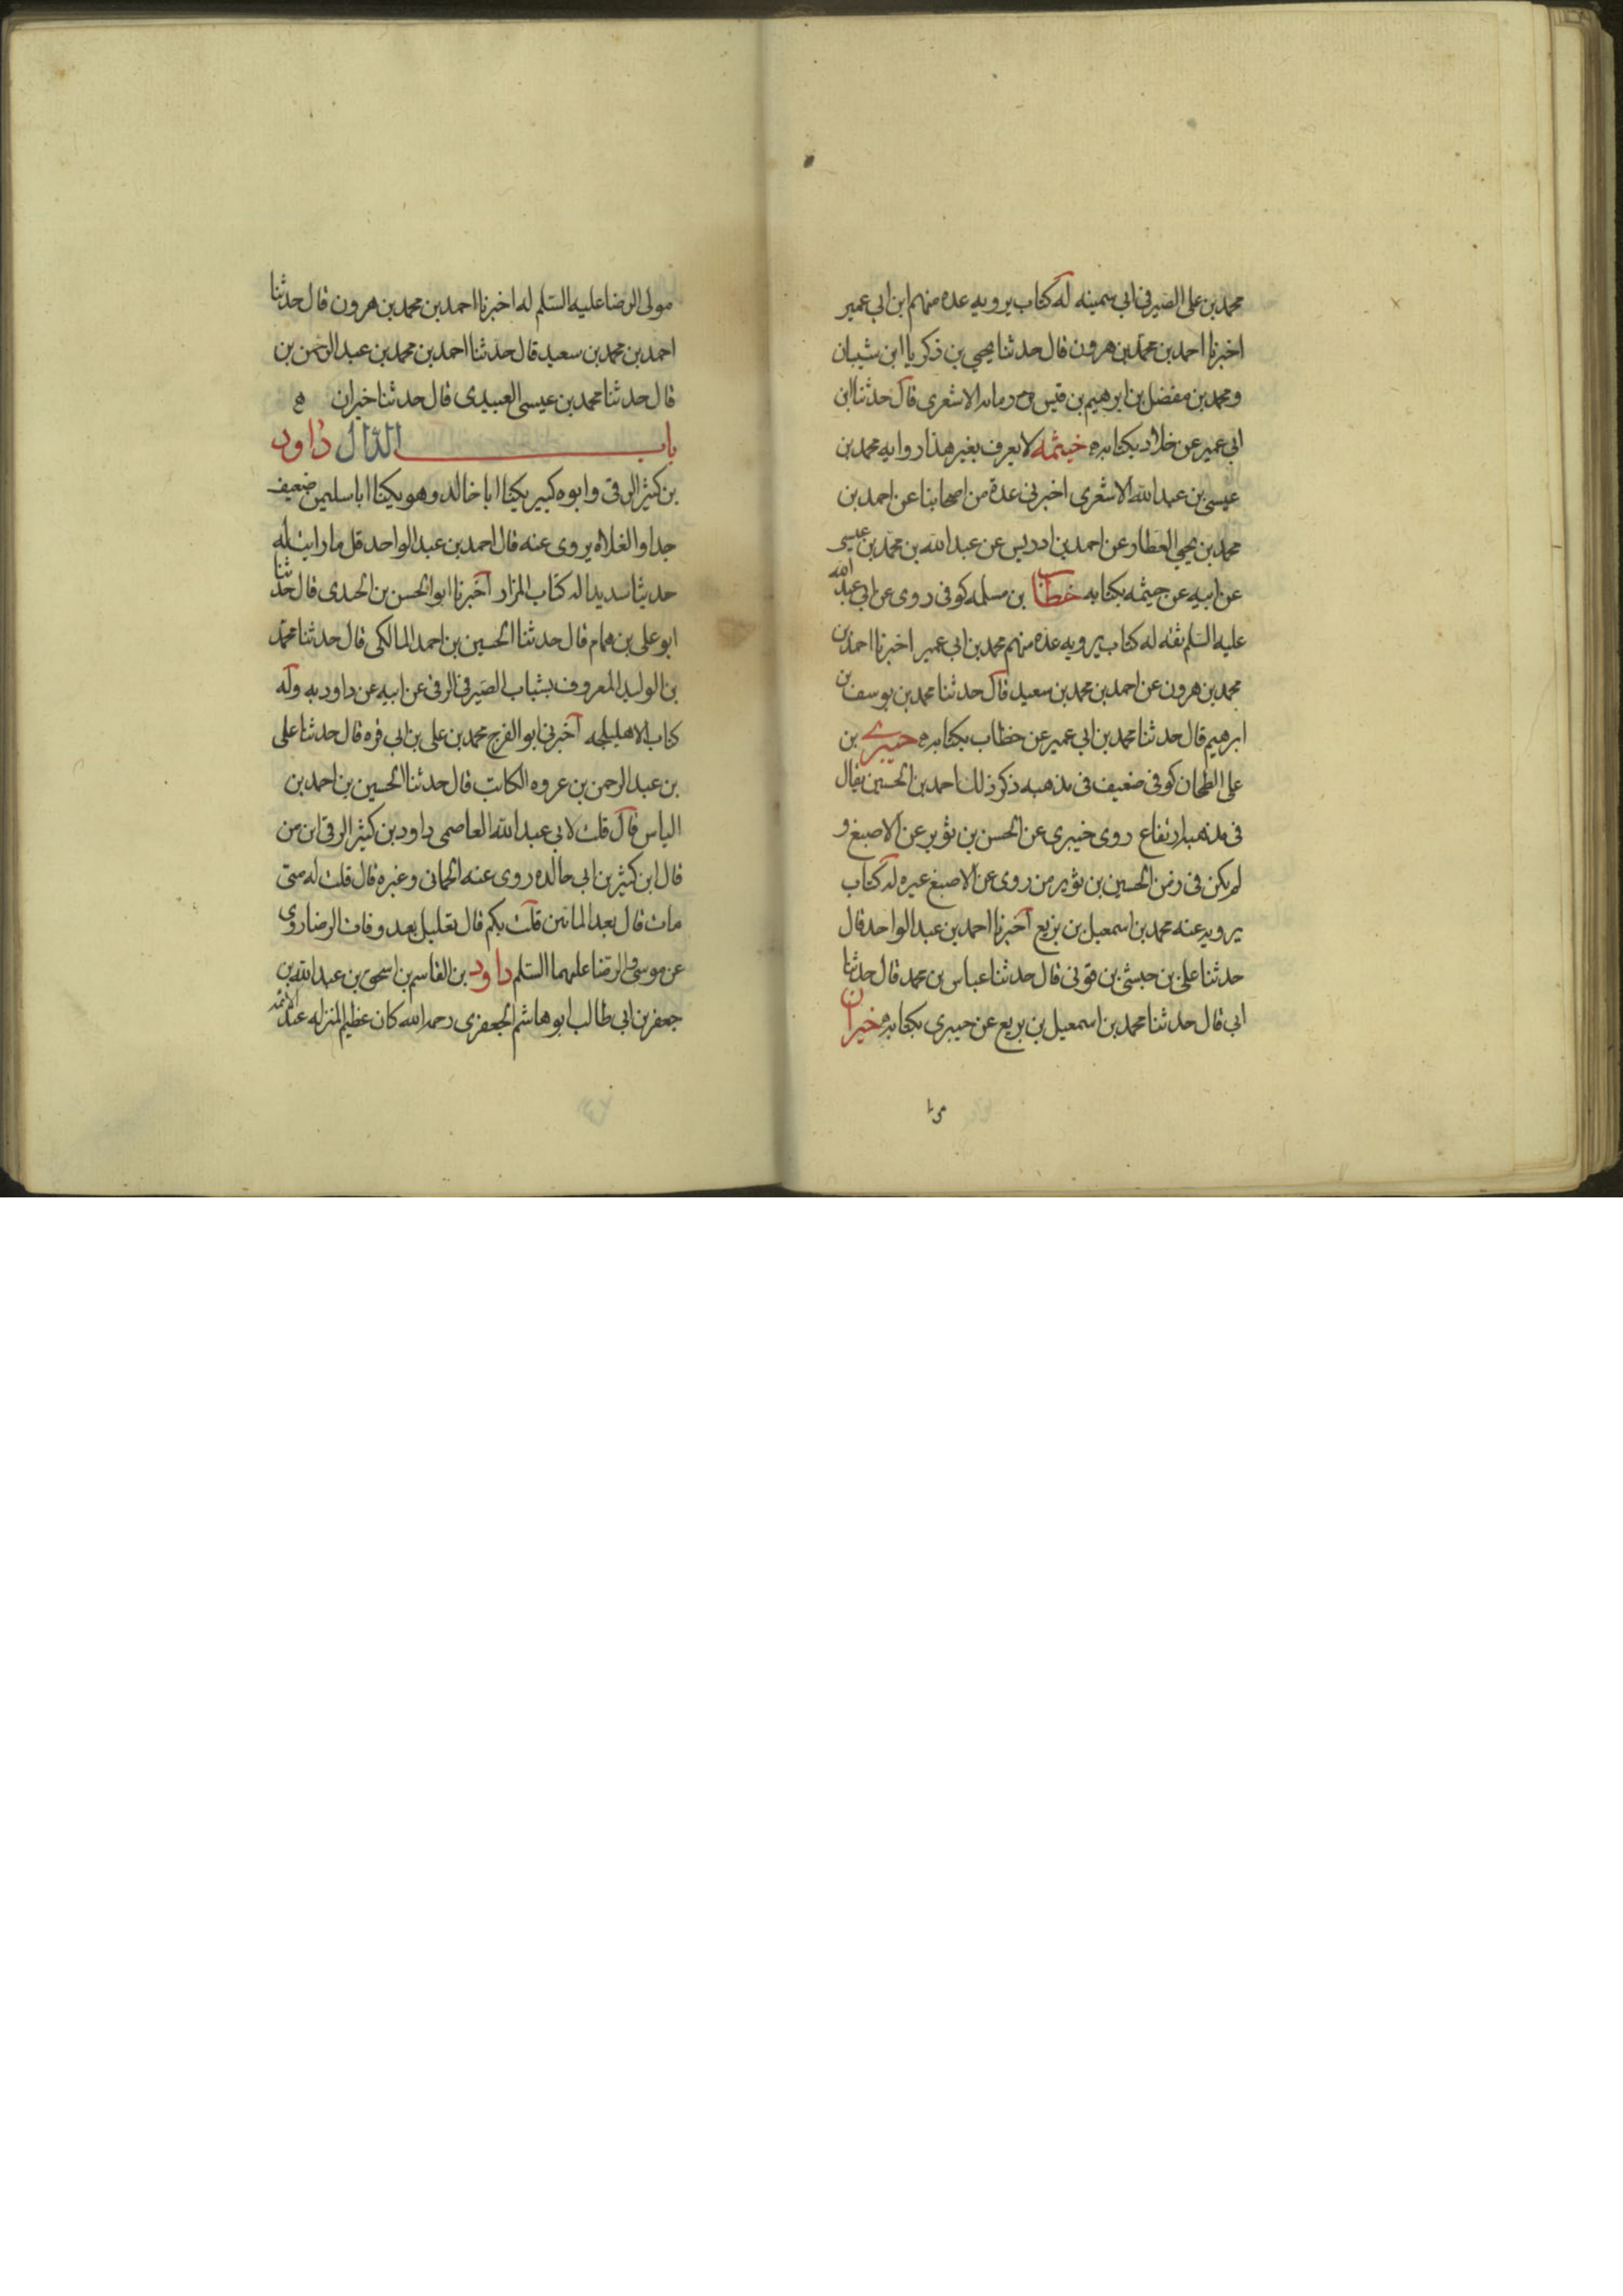 محمد بن على الصيرفى ابي سمينه له كتاب يرويه عده منهم ابن ابي عمير
اخبرنا احمد بن محمد بن هرون قال حدثنا يحيي بن ذكريا ابن شيبان
ومحمد بن مفضل بن ابرهيم بن قيس بن رمانه الاشعرى قال حدثنا ابن
ابي عمير عن خلاد بكتابه خيثمه لا يعرف بغير هذا روايه محمد بن
عيسى بن عبد الله الاشعرى اخبرنى عدة من اصحابنا عن احمد بن
محمد بن يحيي العطار عن احمد بن ادريس عن عبد الله بن محمد بن عيسى
عن ابيه عن خيثمه بكتابه خطاب بن مسلمه كوفى روى عن ابي عبد الله
عليه السلم ثقه له كتاب يرويه عده منهم محمد بن ابي عمير اخبرنا احمد بن
محمد بن هرون عن احمد بن محمد بن سعيد قال حدثنا محمد بن يوسف بن
ابرهيم قال حدثنا محمد بن ابي عمير عن خطاب بكتابه خيبرى بن
على الطحان كوفى ضعيف فى مذهبه ذكر ذلك احمد بن الحسين يقال
فى مذهبه ارتفاع روى خيبرى عن الحسن بن ثوير عن الاصبغ و
لم يكن فى زمن الحسين بن ثوير من روى عن الاصبغ غيره له كتاب
يرويه عنه محمد بن اسمعيل بن بزيع اخبرنا احمد بن عبد الواحد قال
حدثنا على بن حبشى بن قونى قال حدثنا عباس بن محمد قال حدثنا
ابي قال حدثنا محمد بن اسمعيل بن بزيع عن خيبرى بكتابه خيران
مولى الرضا عليه السلم له اخبرنا احمد بن محمد بن هرون قال حدثنا
احمد بن محمد بن سعيد قال حدثنا احمد بن محمد بن عبد الرحمن بن
قال حدثنا محمد بن عيسى العبيدى قال حدثنا خيران
باب الدال داود
بن كثير الرقى وابوه كبير يكنا ابا خالد وهو يكنا ابا سليمن ضعيف
جدا والغلاه يروى عنه قال احمد بن عبد الواحد قل ما رايت له
حديثا سديدا له كتاب المزار اخبرنا ابو الحسن بن الحدى قال حدثنا
ابو على بن همام قال حدثنا الحسين بن احمد المالكى قال حدثنا محمد
بن الوليد المعروف بشباب الصيرفى الرقى عن ابيه عن داود به وله
كتاب الاهليلجه اخبرنى ابو الفرج محمد بن على بن ابي قره قال حدثنا على
بن عبد الرحمن بن عروه الكاتب قال حدثنا الحسين بن احمد بن
الياس قال قلت لابي عبد الله العاصمى داود بن كثير الرقى ابن من
قال ابن كثير بن ابي خالده روى عنه الحمانى وغيره قال قلت له متى
مات قال بعد الماتين قلت بكم قال بقليل بعد وفات الرضا روى
عن موسى والرضا عليهما السلم داود بن القاسم بن اسحق بن عبد الله بن
جعفر بن ابى طالب ابو هاشم الجعفرى رحمه الله كان عظيم المنزله عند الائمه